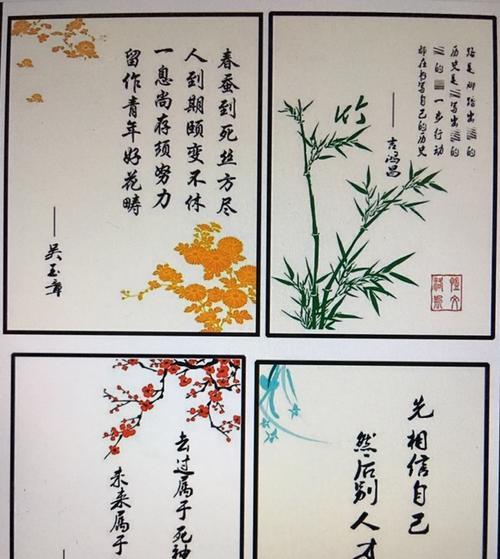 春蚕到死丝方尽
人到期颐变不休
一息尚存须努力
留作青年好花畴
——吴玉章
路是脚踏出的
历史是写出的
的一步行动
都在书写自己的历史
——吉鸿昌
竹
去过属于死神
未来属于
先相信自己
然后别人才